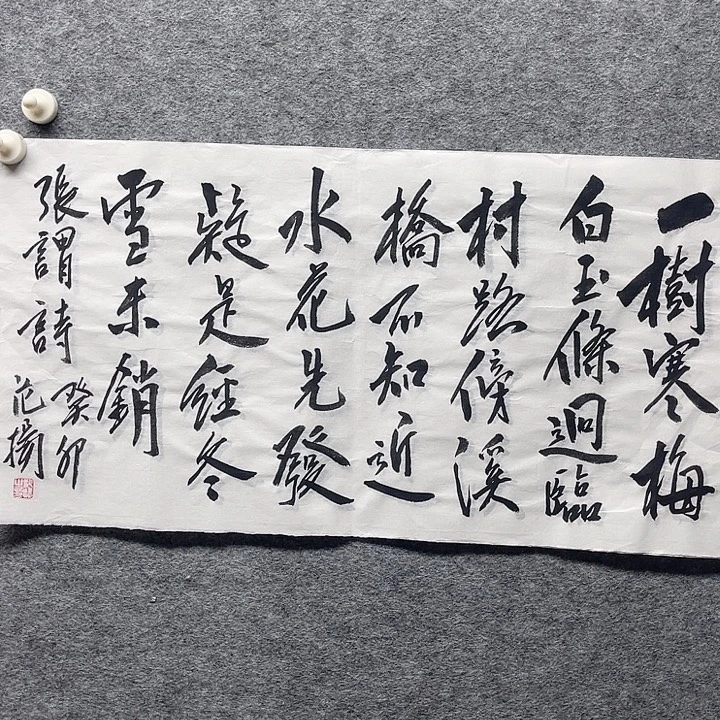 一樹寒梅
白玉條迥臨
村路傍溪
橋不知近
水花先發
疑是經冬
雪未銷
張謂詩
癸卯
范揚